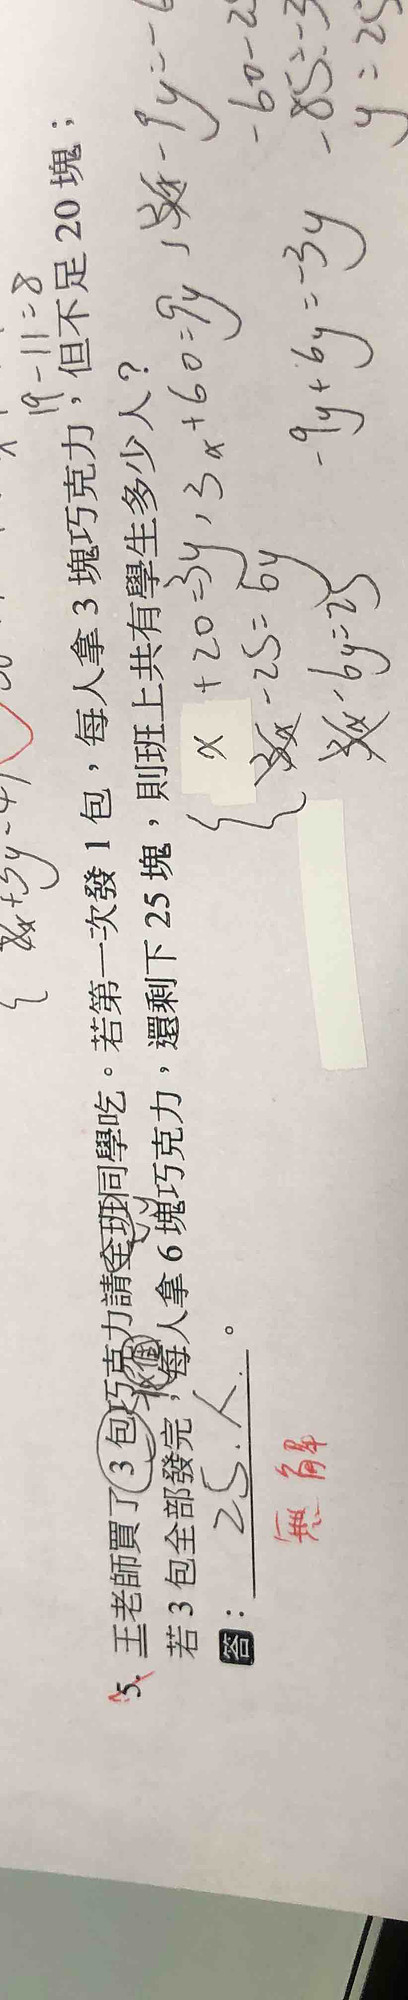 19-11=8
5. 王老師買了3包巧克力請全班同學吃。若第一次發1包，每人拿3塊巧克力，但不足20塊；
若3包全部發完，每人拿6塊巧克力，還剩下25塊，則班上共有學生多少人？
答：25人。
x+20=3y，3x+60=9y，3x-9y=-6
3x-25=6y
3x-6y=25
-9y+6y=-3y
-60-2
-85=-3
y=25
無解